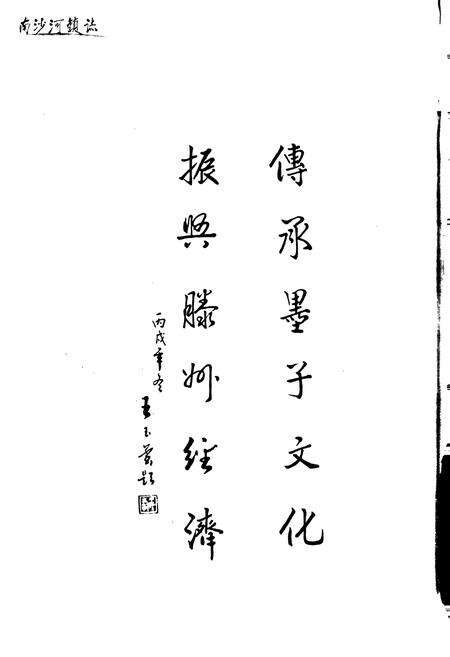 南沙河鎮誌
傳承墨子文化
振興滕州經濟
丙戌年冬
王玉 題